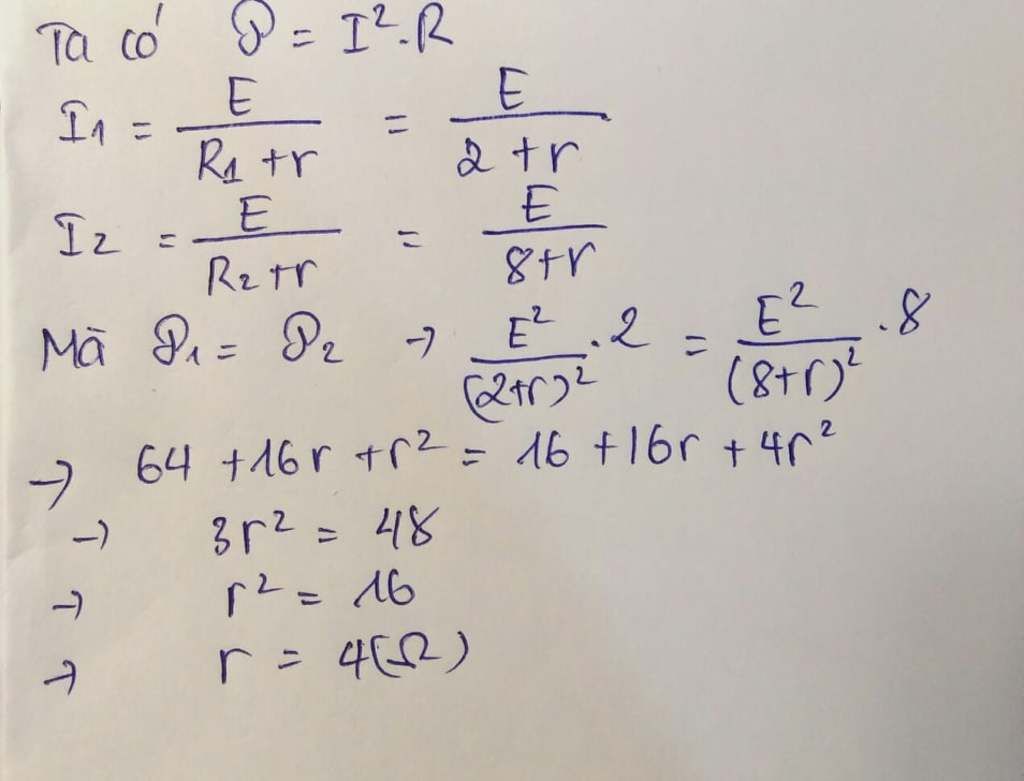 Ta có P = I².R
I₁ = E/(R₁+r) = E/(2+r)
I₂ = E/(R₂+r) = E/(8+r)
Mà P₁ = P₂ → E²/(2+r)² . 2 = E²/(8+r)² . 8
→ 64 + 16r + r² = 16 + 16r + 4r²
→ 3r² = 48
→ r² = 16
→ r = 4(Ω)